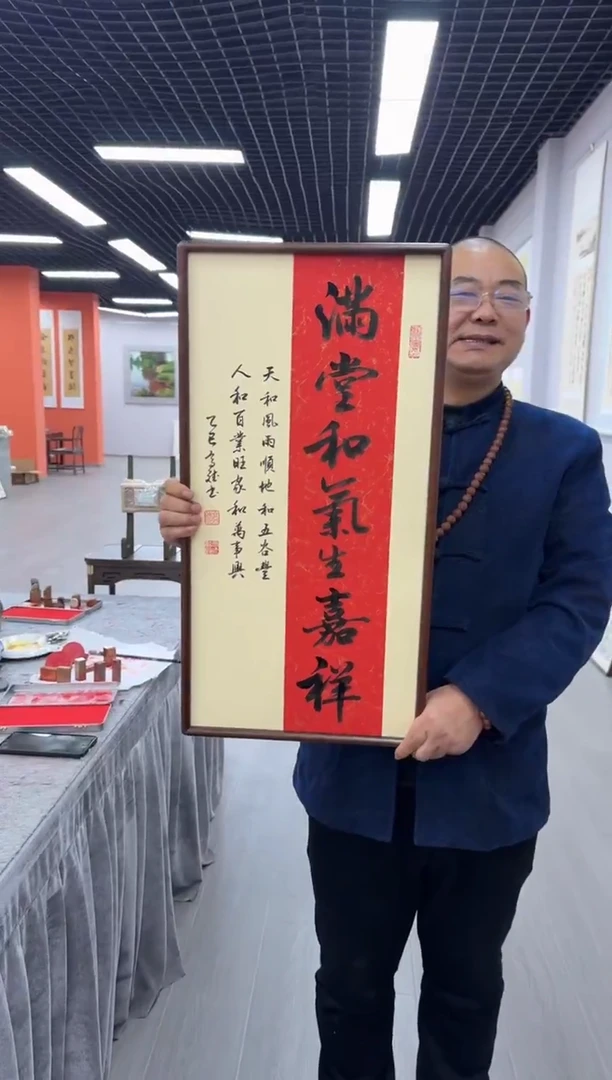 满堂和氣生嘉祥
天和風雨順地和五谷豐
人和百業旺家和萬事興
乙巳